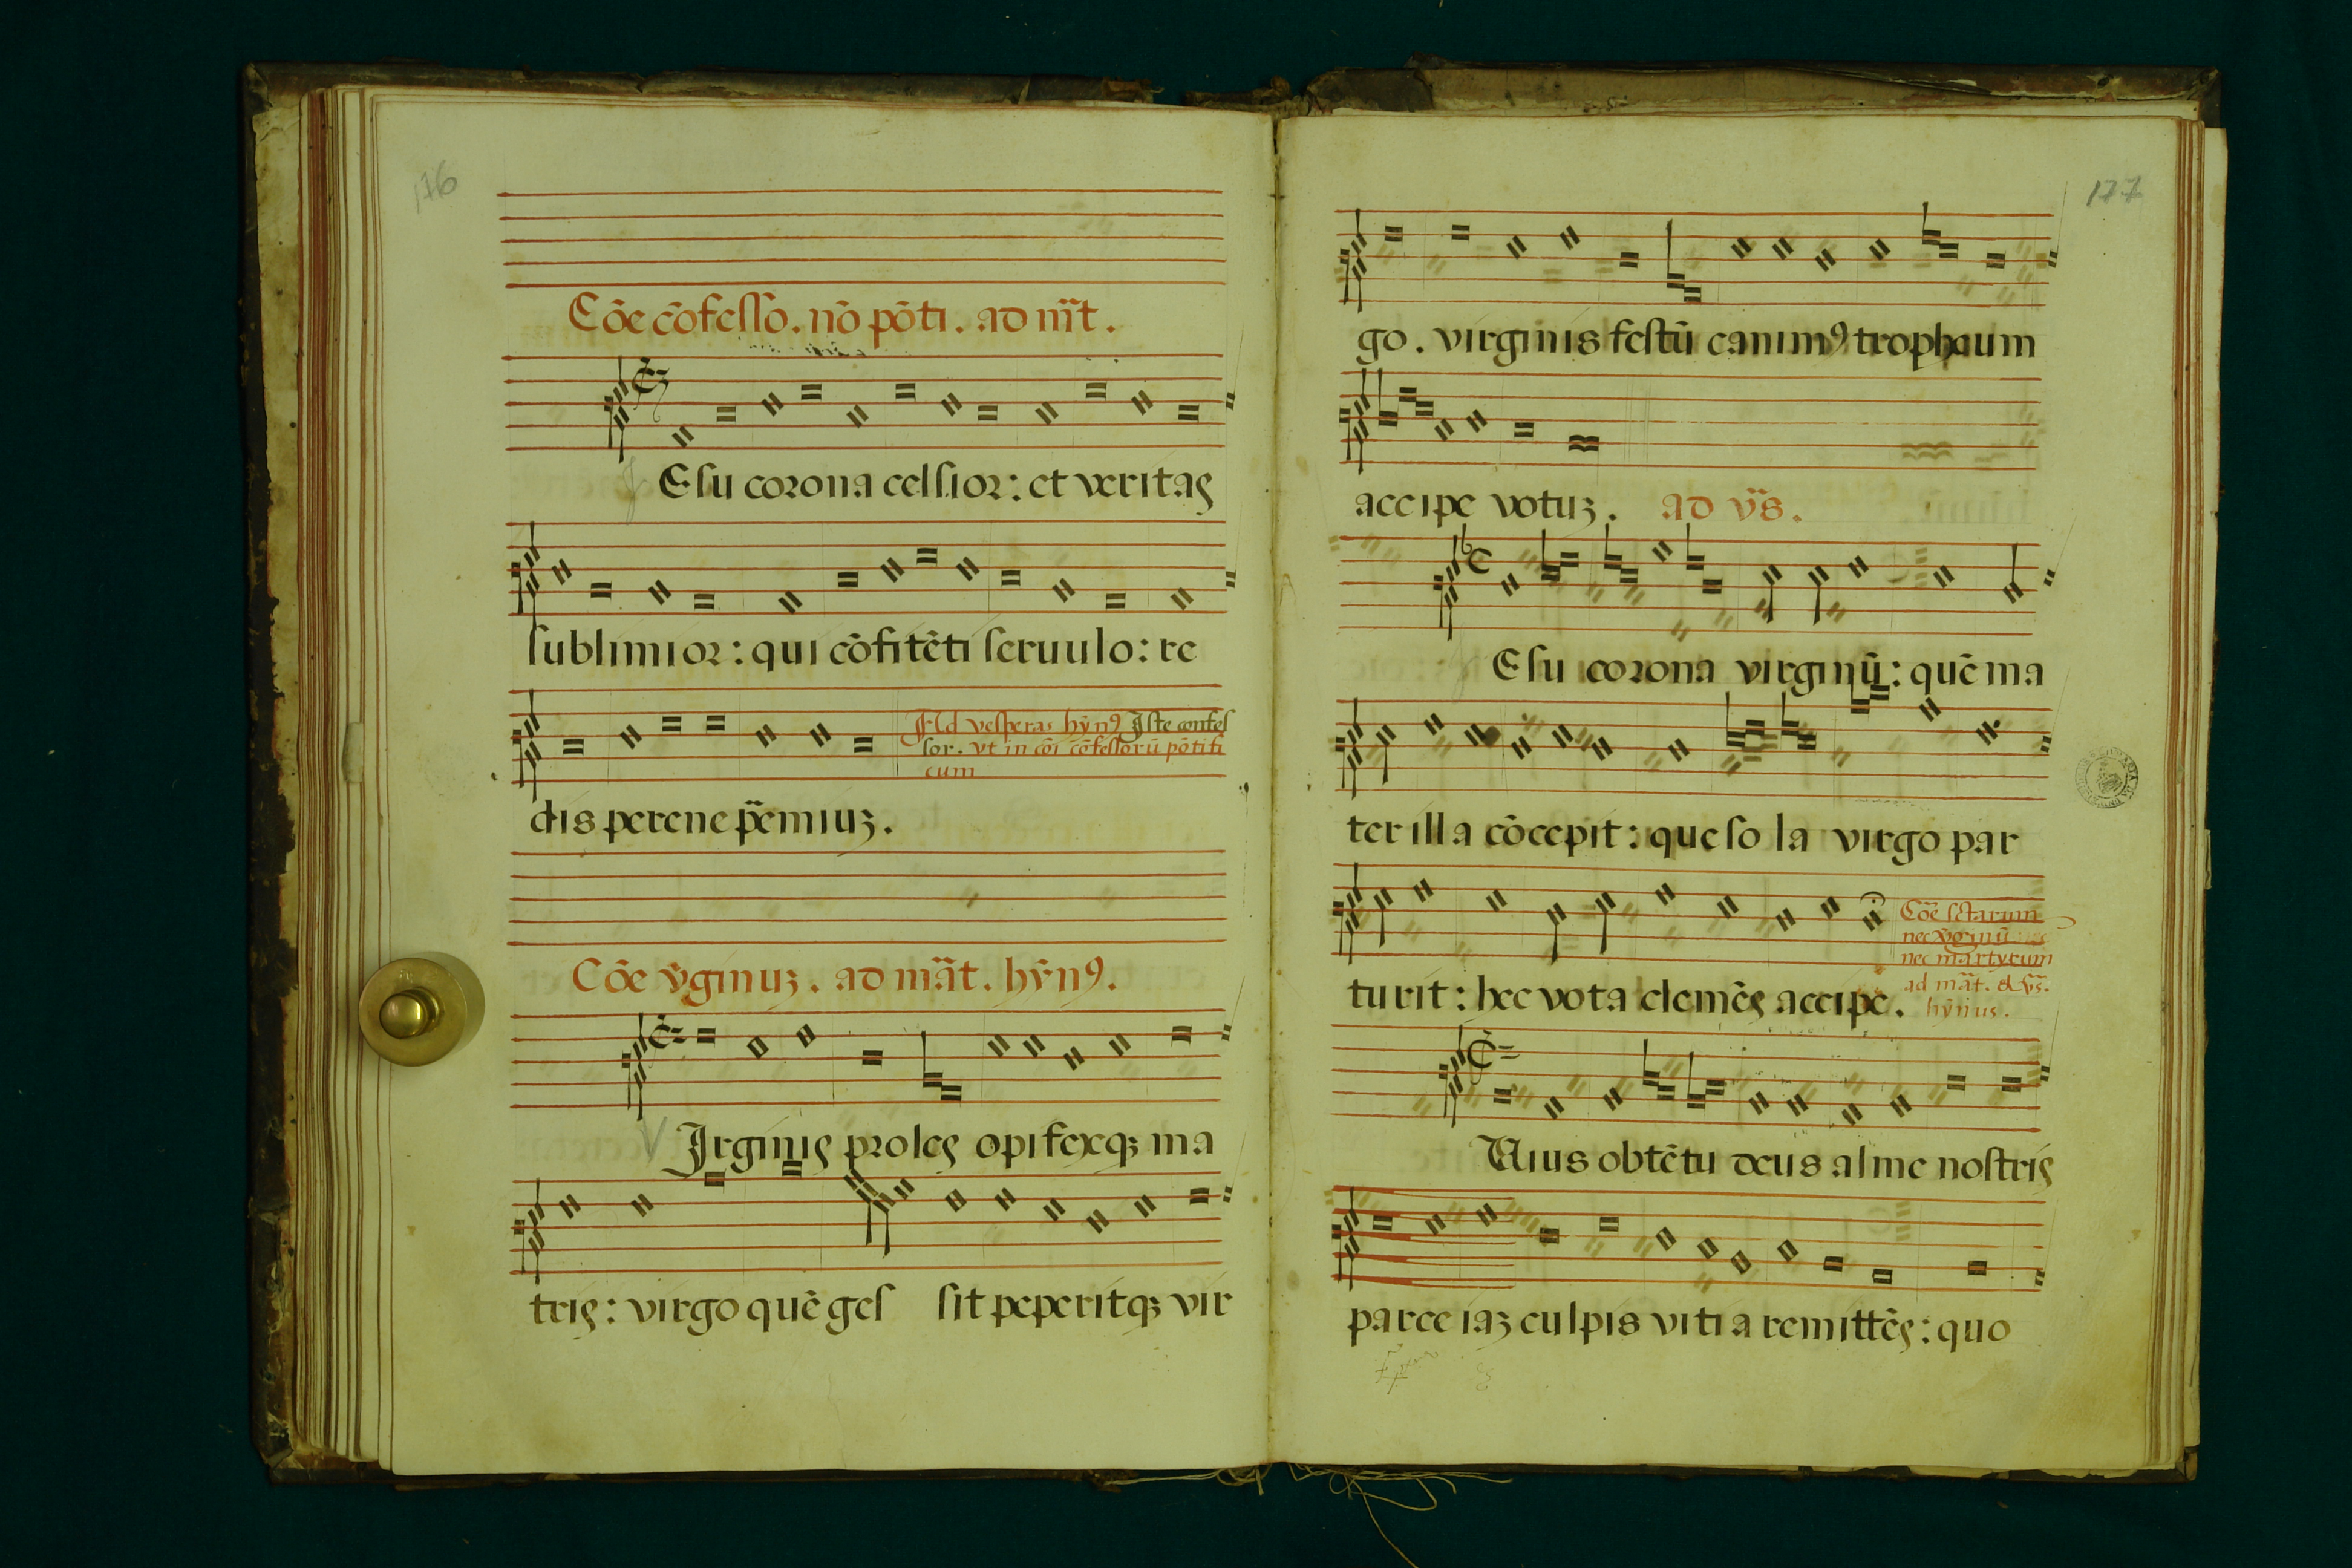 176
Cõe cõfesso. nõ põti. ad m̃t.
Esu corona celsior: et veritas
sublimior: qui cõfitẽti seruulo: re
Ad vesperas hỹnꝰ Iste confes
sor. vt in cõi cõfessorũ põtifi
cum
dis perene p̃emiuꝫ.
Cõe ṽginuꝫ. ad mãt. hỹnꝰ.
V Irginis proles opifexqꝫ ma
tris: virgo quẽ ges sit peperitqꝫ vir
177
go. virginis festũ canimꝰ trophæum
accipe votuꝫ. ad ṽs.
Esu corona virginũ: quẽ ma
ter illa cõcepit: que so la virgo par
turit: hec vota clemẽs accipe.
Cõe sctarum
nec ṽginũ
nec martyrum
ad mãt. & ṽs.
hỹnus.
Uius obtẽtu deus alme nostris
parce iaꝫ culpis vitia remittẽs: quo